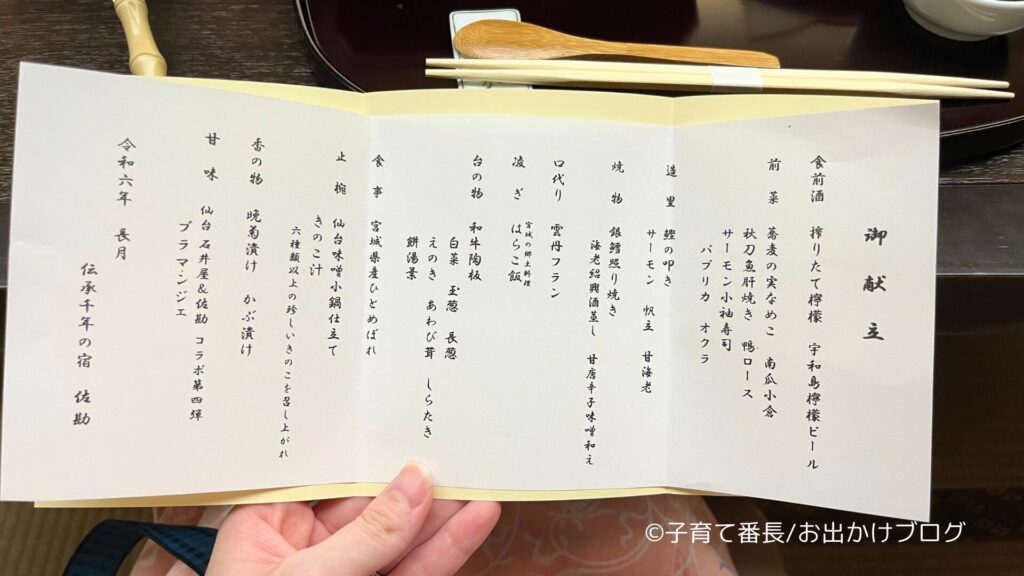 御献立
食前酒 搾りたて檸檬 宇和島檸檬ビール
前菜 蕎麦の実なめこ 南瓜小倉
秋刀魚肝焼き 鴨ロース
サーモン小袖寿司
パプリカ オクラ
造里 鰹の叩き
サーモン 帆立 甘海老
焼物 銀鱈照り焼き
海老紹興酒蒸し 甘唐辛子味噌和え
口代り 雲丹フラン
凌ぎ 宮城の郷土料理 はらこ飯
台の物 和牛陶板
白菜 玉葱 長葱
えのき あわび茸 しらたき
餅湯葉
食事 宮城県産ひとめぼれ
止椀 仙台味噌小鍋仕立て
きのこ汁
六種類以上の珍しいきのこを召し上がれ
香の物 晩菊漬け かぶ漬け
甘味 仙台石井屋&佐勘 コラボ第四弾
ブラマンジェ
令和六年 長月
伝承千年の宿 佐勘
©子育て番長/お出かけブログ